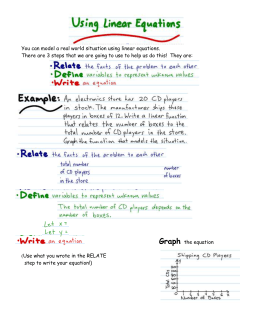 Using Linear Equations
You can model a real world situation using linear equations.
There are 3 steps that we are going to use to help us do this! They are:
•Relate the facts of the problem to each other
•Define variables to represent unknown values
•Write an equation
Example: An electronics store has 20 CD players
in stock. The manufacturer ships these
players in boxes of 12. Write a linear function
that relates the number of boxes to the
total number of CD players in the store.
Graph the function that models the situation.
•Relate the facts of the problem to each other
total number
of CD players
in the store
number
of boxes
•Define variables to represent unknown values
The total number of CD players depends on the
number of boxes.
Let x =
Let y =
•Write an equation
(Use what you wrote in the RELATE
step to write your equation!)
Graph the equation
Shipping CD Players
Number of Boxes